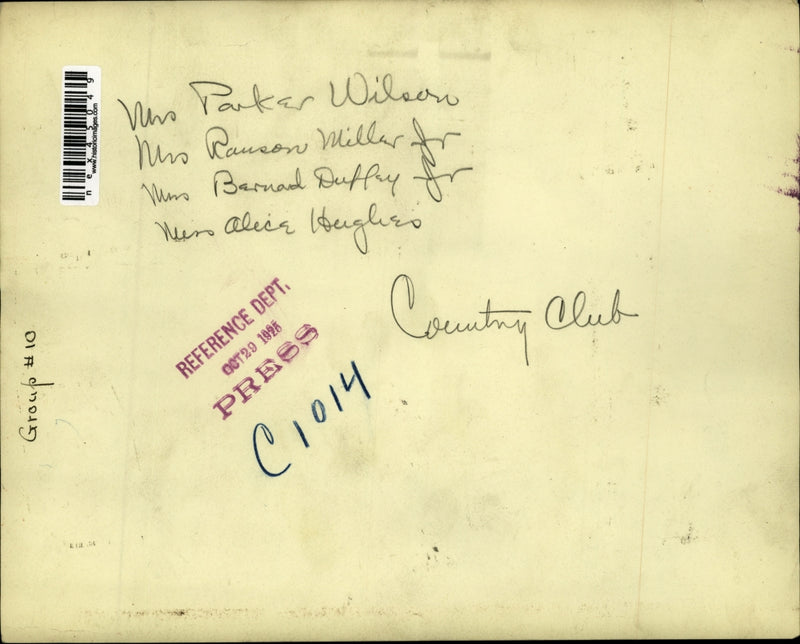 Mrs Parker Wilson
Mrs Ranson Miller Jr
Mrs Bernad Duffey Jr
Miss Alice Hughes
Country Club
REFERENCE DEPT.
OCT 29 1925
PRESS
C1014
Group #10
nex45049
www.historicimages.com